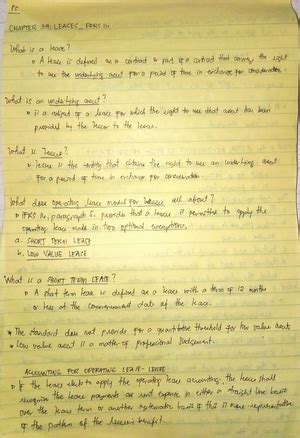 CHAPTER 39, LEASES_ PFRS 16
What is a lease?
• A lease is defined as a contract or part of a contract that conveys the right
to use the underlying asset for a period of time in exchange for consideration.
What is an underlying asset?
• is a subject of a lease for which the right to use that asset has been
provided by the lessor to the lessee.
What is lessee?
• lessee is the entity that obtains the right to use an underlying asset
for a period of time in exchange for consideration.
What does operating lease model for lessee all about?
• IFRS 16, paragraph 5, provides that a lessee is permitted to apply the
operating lease model in two optional exemptions.
a. SHORT TERM LEASE
b. LOW VALUE LEASE
What is a SHORT TERM LEASE?
• A short term lease is defined as a lease with a term of 12 months
or less at the commencement date of the lease.
• The standard does not provide for a quantitative threshold for low value asset
• Low value asset is a matter of professional judgement.
ACCOUNTING FOR OPERATING LEASE - LESSEE
• If the lessee elects to apply the operating lease accounting, the lessee shall
recognize the lease payments as rent expense in either a straight line basis
over the lease term or another systematic basis if this is more representative
of the pattern of the lessee's benefit.